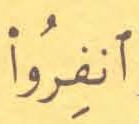 ٱنفِرُوا۟